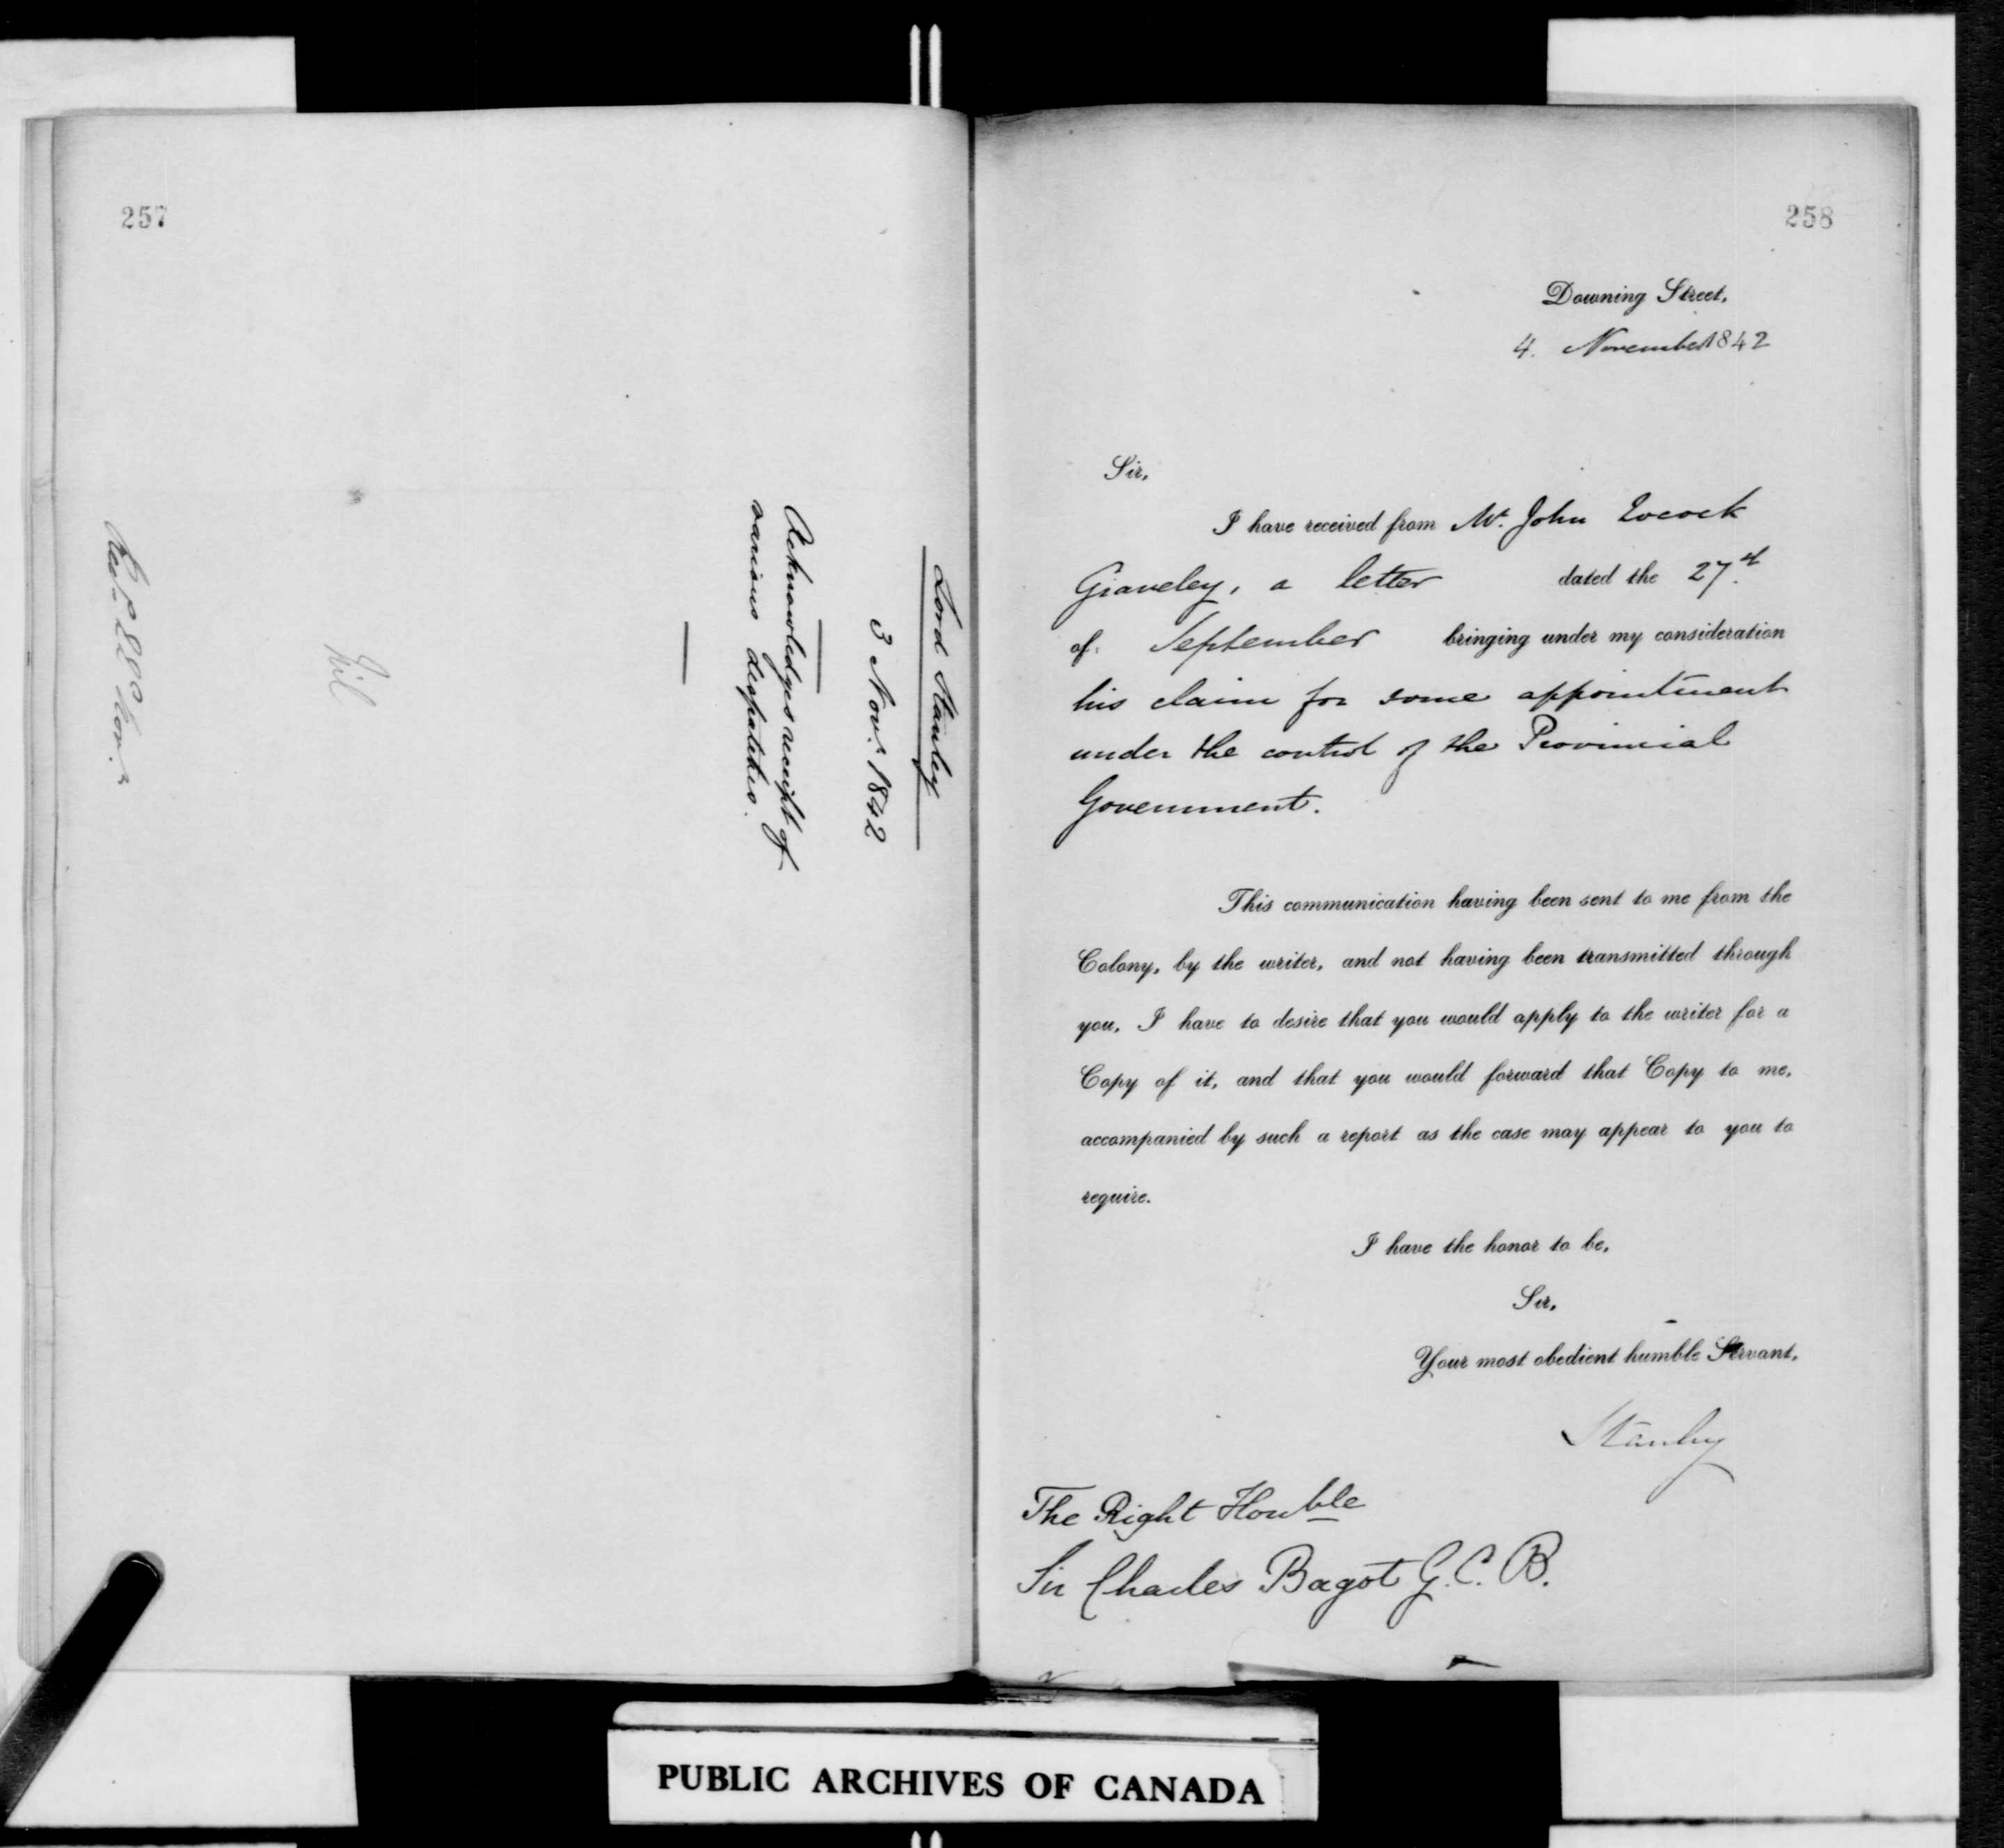 257
Lord Stanley
3 Nov.r 1842
Acknowledges receipt of
various despatches.
Nil
258
Downing Street,
4. November 1842
Sir,
I have received from Mr. John Locock
Graveley, a letter dated the 27th
of September bringing under my consideration
his claim for some appointment
under the control of the Provincial
Government.
This communication having been sent to me from the
Colony, by the writer, and not having been transmitted through
you, I have to desire that you would apply to the writer for a
Copy of it, and that you would forward that Copy to me,
accompanied by such a report as the case may appear to you to
require.
I have the honor to be,
Sir,
Your most obedient humble Servant,
Stanley
The Right Honble
Sir Charles Bagot G.C.B.
PUBLIC ARCHIVES OF CANADA